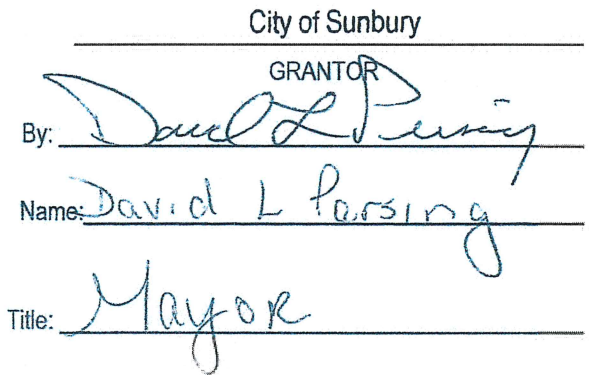 City of Sunbury
GRANTOR
By: David L Persing
Name: David L Persing
Title: Mayor